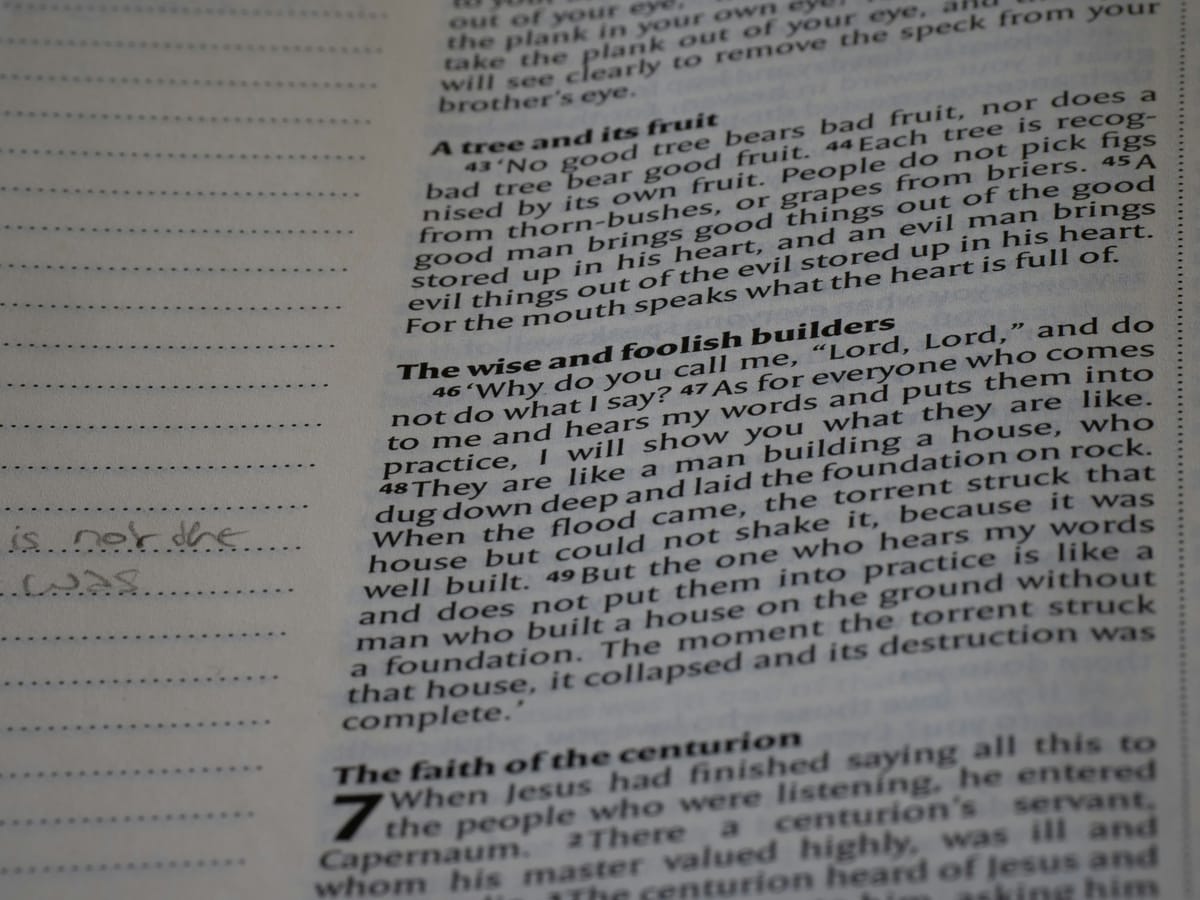 out of your eye,
the plank in your own eye,
take the plank out of your eye, and
will see clearly to remove the speck from your
brother's eye.
A tree and its fruit
43 'No good tree bears bad fruit, nor does a
bad tree bear good fruit. 44 Each tree is recog-
nised by its own fruit. People do not pick figs
from thorn-bushes, or grapes from briers. 45 A
good man brings good things out of the good
stored up in his heart, and an evil man brings
evil things out of the evil stored up in his heart.
For the mouth speaks what the heart is full of.
The wise and foolish builders
46 'Why do you call me, “Lord, Lord,” and do
not do what I say? 47 As for everyone who comes
to me and hears my words and puts them into
practice, I will show you what they are like.
48 They are like a man building a house, who
dug down deep and laid the foundation on rock.
When the flood came, the torrent struck that
house but could not shake it, because it was
well built. 49 But the one who hears my words
and does not put them into practice is like a
man who built a house on the ground without
a foundation. The moment the torrent struck
that house, it collapsed and its destruction was
complete.'
The faith of the centurion
7 When Jesus had finished saying all this to
the people who were listening, he entered
Capernaum. 2 There a centurion's servant,
whom his master valued highly, was ill and
The centurion heard of Jesus and
him, asking him
is not the
was